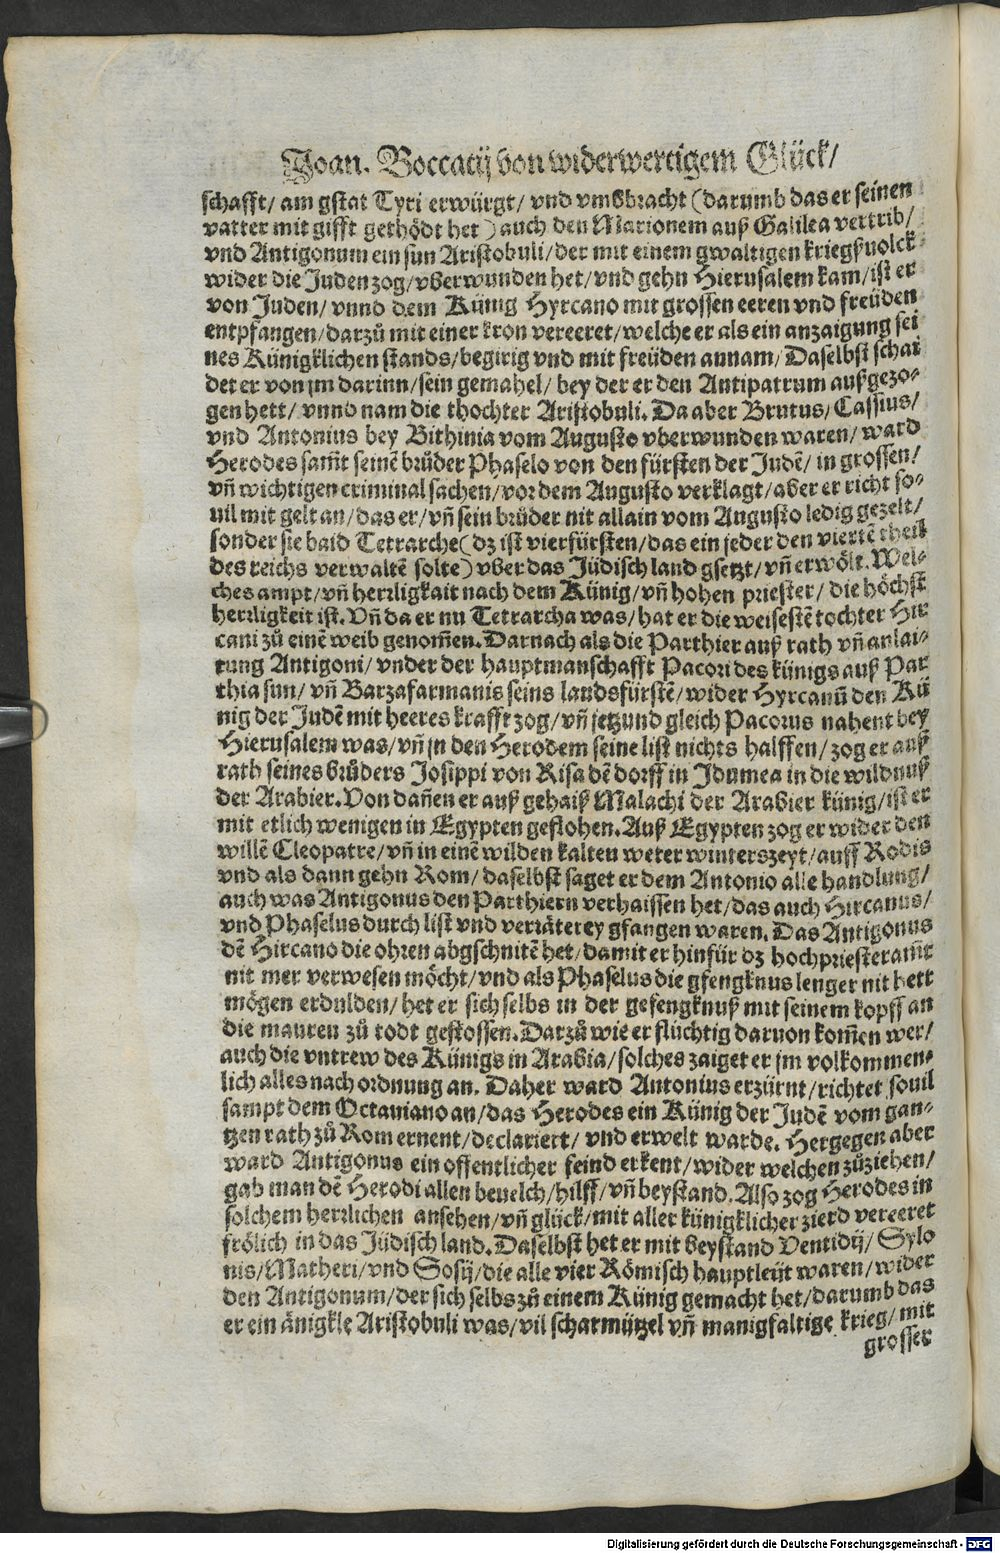 Joan. Boccatij von widerwertigem Glück/
schafft/ am gstat Tyri erwürgt/ vnd vmbbracht (darumb das er seinen
vatter mit gifft gethödt het) auch den Marionem auß Galilea vertrib/
vnd Antigonum ein sun Aristobuli/ der mit einem gwaltigen kriegßuolck
wider die Juden zog/ vberwunden het/ vnd gehn Hierusalem kam/ ist er
von Juden/ vnnd dem Künig Hyrcano mit grossen eeren vnd freüden
entpfangen/ darzů mit einer kron vereeret/ welche er als ein anzaigung sei
nes Künigklichen stands/ begirig vnd mit freüden annam/ Daselbst schai
det er von jm darinn/ sein gemahel/ bey der er den Antipatrum außgezo-
gen hett/ vnnd nam die thochter Aristobuli. Da aber Brutus/ Cassius/
vnd Antonius bey Bithinia vom Augusto vberwunden waren/ ward
Herodes sam̃t seinẽ brůder Phaselo von den fürsten der Judẽ/ in grossen/
vñ wichtigen criminal sachen/ vor dem Augusto verklagt/ aber er richt so-
uil mit gelt an/ das er/ vñ sein brüder nit allain vom Augusto ledig gezelt/
sonder sie baid Tetrarche (dz ist vierfürsten/ das ein jeder den viertẽ theil
des reichs verwaltẽ solte) vber das Jüdisch land gsetzt/ vñ erwölt. Wel-
ches ampt/ vñ herrligkait nach dem Künig/ vñ hohen priester/ die höchst
herrligkeit ist. Vñ da er nu Tetrarcha was/ hat er die weisestẽ tochter Hir
cani zů einẽ weib genom̃en. Darnach als die Parthier auß rath vñ anlai-
tung Antigoni/ vnder der hauptmanschafft Pacori des künigs auß Par
thia sun/ vñ Barzafarmanis seins landsfürstẽ/ wider Hyrcanũ den Kü
nig der Judẽ mit heeres krafft zog/ vñ jetzund gleich Pacorus nahent bey
Hierusalem was/ vñ jn den Herodem seine list nichts halffen/ zog er auß
rath seines brůders Josippi von Risa dẽ dorff in Idumea in die wildnuß
der Arabier. Von dañen er auß gehaiß Malachi der Arabier künig/ ist er
mit etlich wenigen in Egypten geflohen. Auß Egypten zog er wider den
willẽ Cleopatre/ vñ in einẽ wilden kalten weter winterszeyt/ auff Rodis
vnd als dann gehn Rom/ daselbst saget er dem Antonio alle handlung/
auch was Antigonus den Parthiern verhaissen het/ das auch Hircanus/
vnd Phaselus durch list vnd verräterey gfangen waren. Das Antigonus
dẽ Hircano die ohren abgschnitẽ het/ damit er hinfür dz hochpriesteram̃t
nit mer verwesen möcht/ vnd als Phaselus die gfengknus lenger nit hett
mögen erdulden/ het er sich selbs in der gefengknuß mit seinem kopff an
die mauren zů todt gestossen. Darzů wie er flüchtig daruon kom̃en wer/
auch die vntrew des Künigs in Arabia/ solches zaiget er jm volkommen-
lich alles nach ordnung an. Daher ward Antonius erzürnt/ richtet souil
sampt dem Octauiano an/ das Herodes ein Künig der Judẽ vom gan-
tzen rath zů Rom ernent/ declariert/ vnd erwelt warde. Hergegen aber
ward Antigonus ein offentlicher feind erkent/ wider welchen zůziehen/
gab man dẽ Herodi allen beuelch/ hilff/ vñ beystand. Also zog Herodes in
solchem herrlichen ansehen/ vñ glück/ mit aller künigklicher zierd vereeret
frölich in das Jüdisch land. Daselbst het er mit beystand Ventidij/ Sylo
nis/ Matheri/ vnd Sosij/ die alle vier Römisch hauptleüt waren/ wider
den Antigonum/ der sich selbs zů einem Künig gemacht het/ darumb das
er ein änigkle Aristobuli was/ vil scharmützel vñ manigfaltige krieg/ mit
grosser
Digitalisierung gefördert durch die Deutsche Forschungsgemeinschaft - DFG